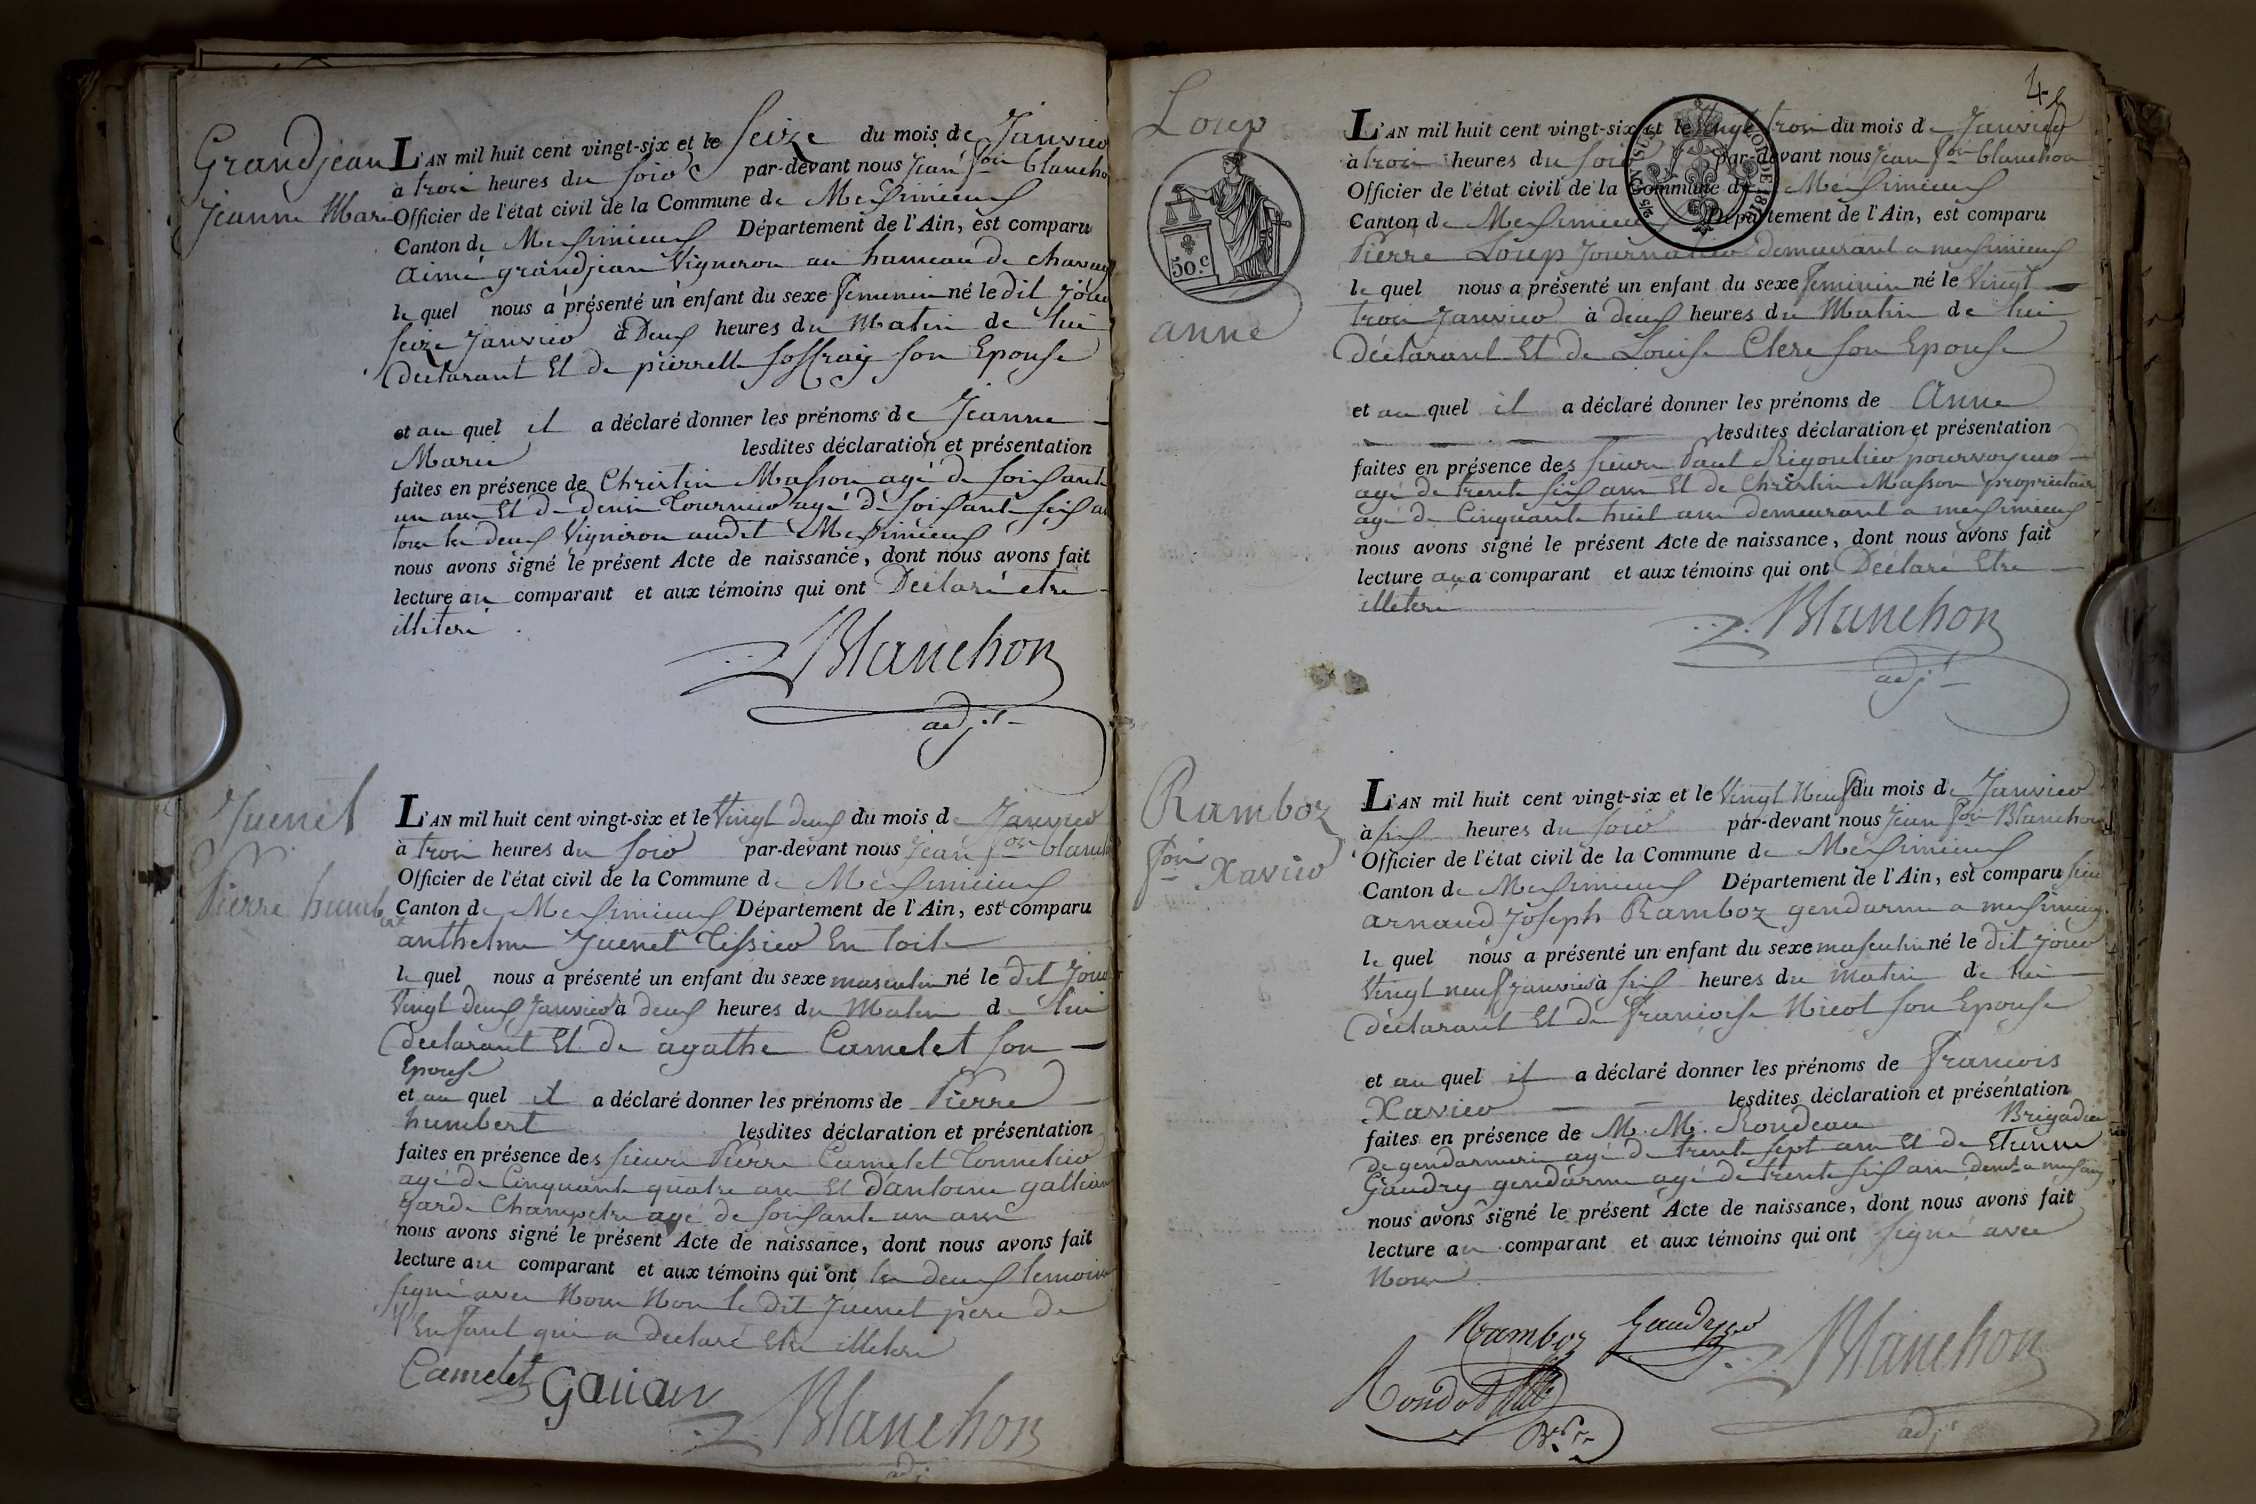 Grandjean
Jeanne Marie
L'AN mil huit cent vingt-six et le Seize du mois de Janvier
à trois heures du soir par-devant nous Jean fois blanchon
Officier de l'état civil de la Commune de Meximieux
Canton de Meximieux Département de l'Ain, est comparu
aimé grandjean Vigneron au hameau de
le quel nous a présenté un enfant du sexe feminin né le dit jour
seize Janvier à Deux heures du Matin de lui
declarant Et de pierrette son Epouse
et au quel il a déclaré donner les prénoms de Jeanne
Marie lesdites déclaration et présentation
faites en présence de Christin Masson agé de soixante
un ans Et de denis Tournier agé de soixante six ans
tous les deux Vigneron audit Meximieux
nous avons signé le présent Acte de naissance, dont nous avons fait
lecture au comparant et aux témoins qui ont Declaré etre
illiteré.
Blanchon
adjt
Juenet
Pierre humbert
L'AN mil huit cent vingt-six et le Vingt deux du mois de Janvier
à trois heures du soir par-devant nous Jean fois blanchon
Officier de l'état civil de la Commune de Meximieux
Canton de Meximieux Département de l'Ain, est comparu
anthelme Juenet Tissier En toile
le quel nous a présenté un enfant du sexe masculin né le dit Jour
Vingt deux Janvier à deux heures du Matin de lui
declarant Et de agathe Camelet son
Epouse
et au quel il a déclaré donner les prénoms de Pierre
humbert lesdites déclaration et présentation
faites en présence des sieurs Pierre Camelet Tonnelier
agé de Cinquante quatre ans Et d'antoine gallian
garde Champetre agé de soixante un ans
nous avons signé le présent Acte de naissance, dont nous avons fait
lecture au comparant et aux témoins qui ont les deux temoins
signé avec Nous Non le dit Juenet pere de
l'Enfant qui a declaré Etre illiteré
Camelet Galian Blanchon
adjt
4
Loup
50.c
anne
L'AN mil huit cent vingt-six et le vingt trois du mois de Janvier
à trois heures du soir par-devant nous Jean fois blanchon
Officier de l'état civil de la Commune de Meximieux
Canton de Meximieux Département de l'Ain, est comparu
Pierre Loup Journalier demeurant a meximieux
le quel nous a présenté un enfant du sexe feminin né le Vingt
trois Janvier à deux heures du Matin de lui
déclarant Et de Louise Clere son Epouse
et au quel il a déclaré donner les prénoms de Anne
lesdites déclaration et présentation
faites en présence des sieurs Paul Rigoulier pourvoyeur
agé de trente six ans Et de Christin Masson propriétaire
agé de Cinquante huit ans demeurant a meximieux
nous avons signé le présent Acte de naissance, dont nous avons fait
lecture au comparant et aux témoins qui ont Déclaré Etre
illiteré
Blanchon
adjt
Ramboz
fois Xavier
L'AN mil huit cent vingt-six et le Vingt Neuf du mois de Janvier
à six heures du soir par-devant nous Jean fois Blanchon
Officier de l'état civil de la Commune de Meximieux
Canton de Meximieux Département de l'Ain, est comparu sieur
arnaud Joseph Ramboz gendarme a meximieux
le quel nous a présenté un enfant du sexe masculin né le dit jour
Vingt neuf janvier à six heures du matin de lui
déclarant Et de françoise Nicot son Epouse
et au quel il a déclaré donner les prénoms de francois
Xavier lesdites déclaration et présentation
faites en présence de M. M. Rondeau Brigadier
de gendarmerie agé de trente sept ans Et de Etienne
Gaudry gendarme agé de trente six ans demt a meximx
nous avons signé le présent Acte de naissance, dont nous avons fait
lecture au comparant et aux témoins qui ont signé avec
Nous.
Ramboz Gaudry Blanchon
adjt